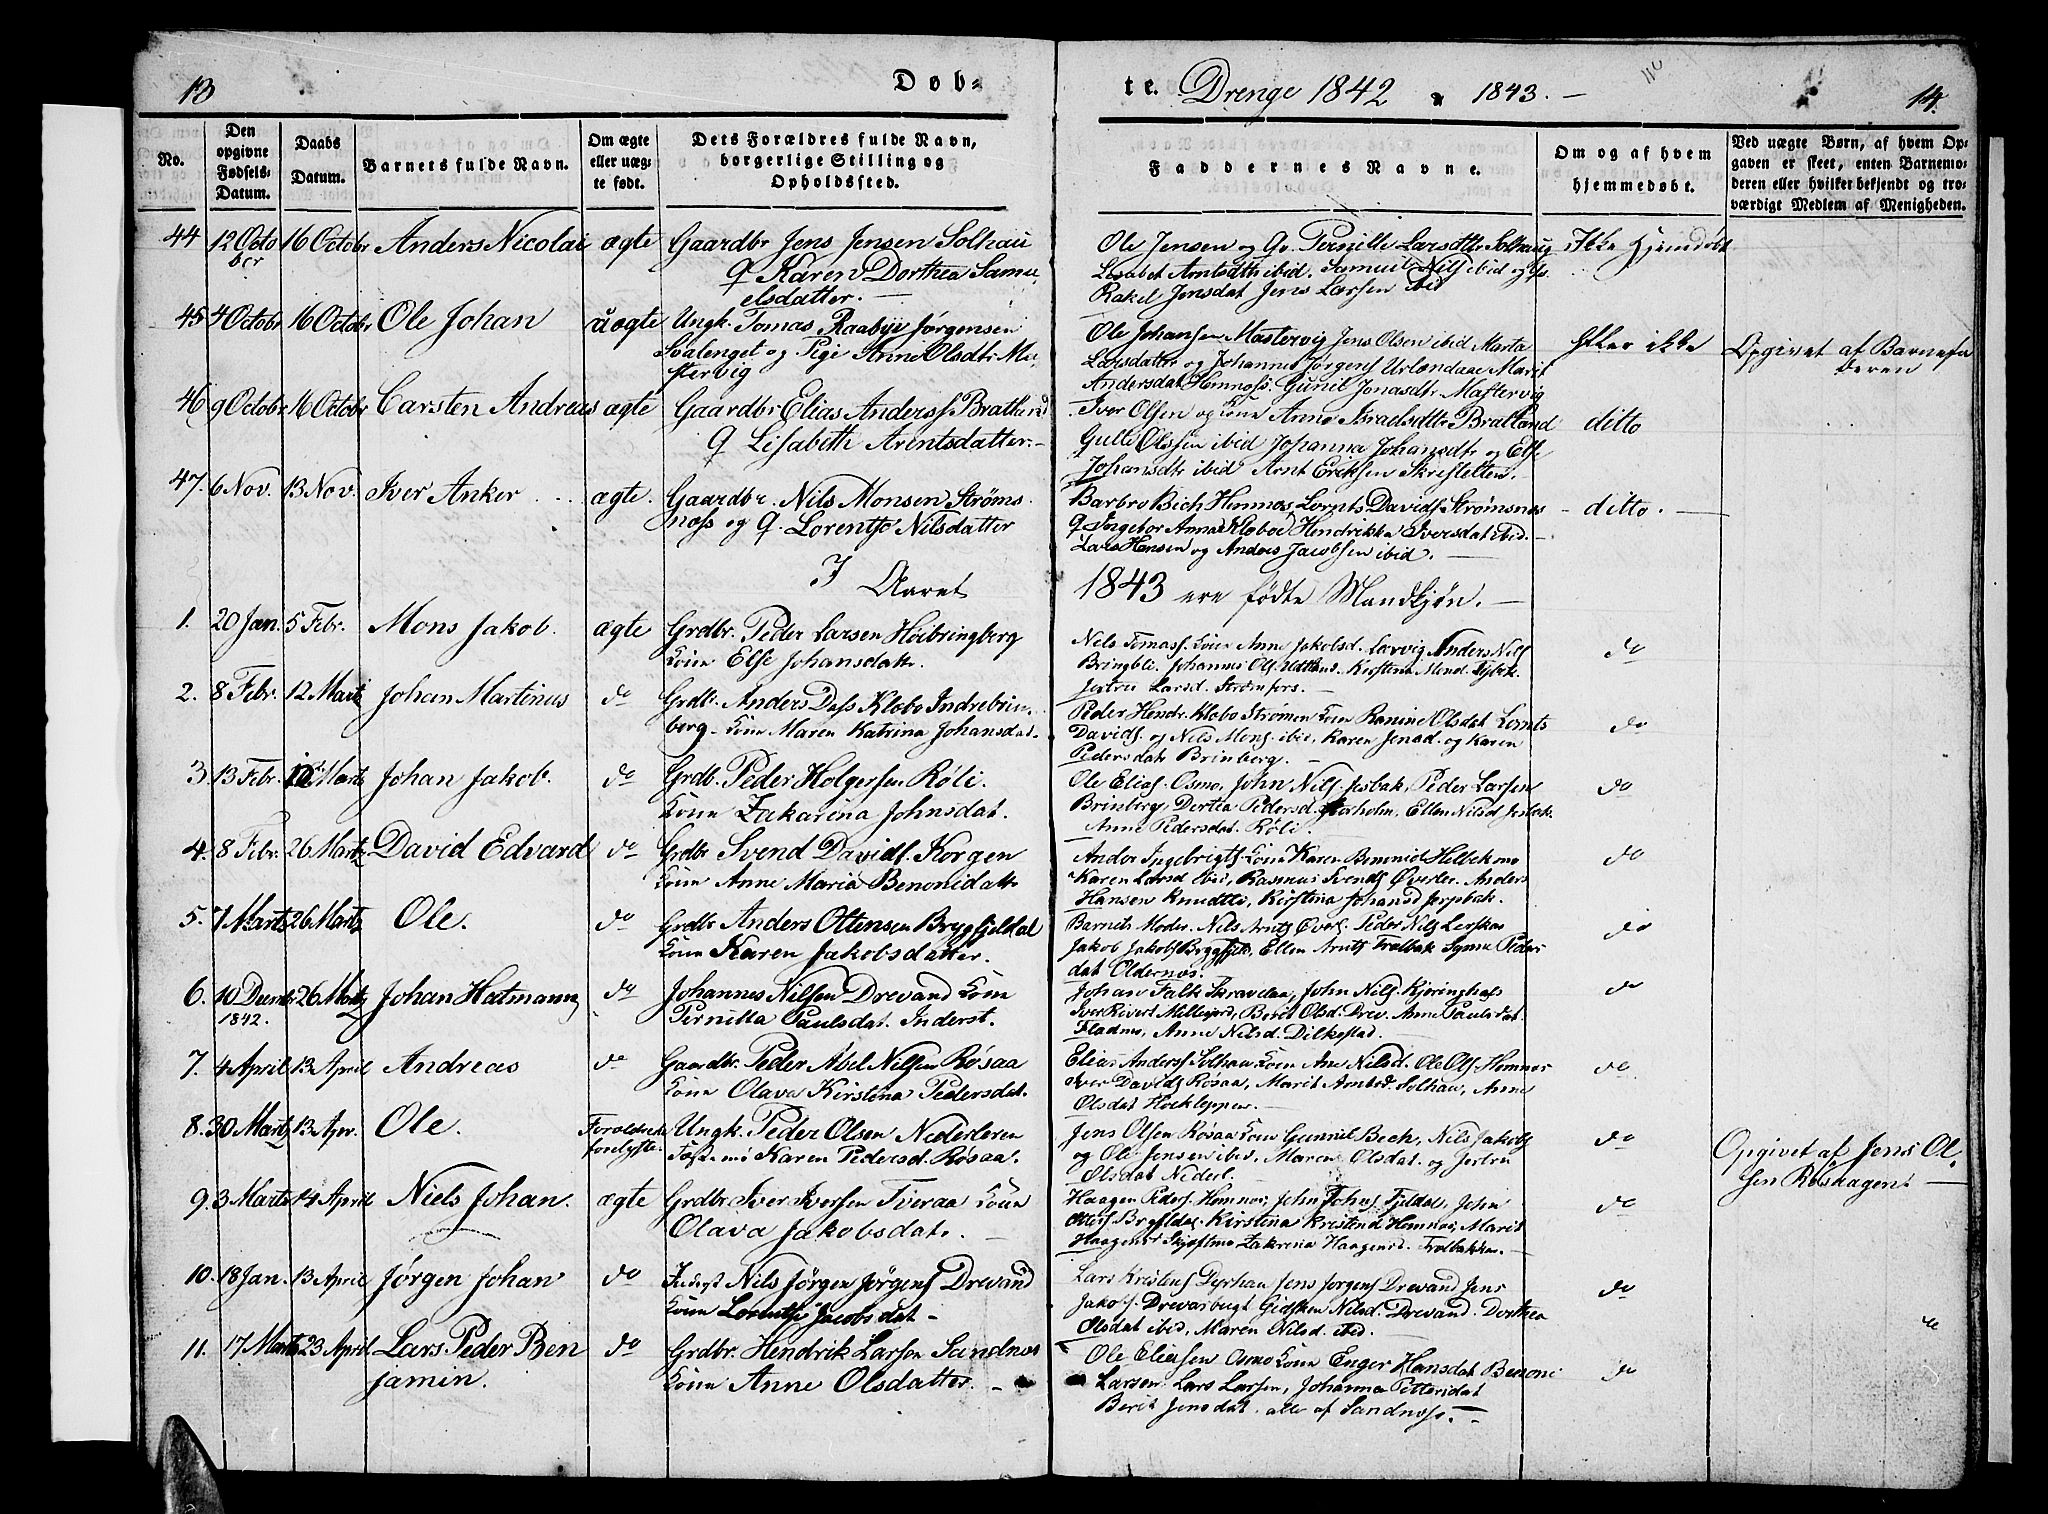 13
Døb-
te. Drenge 1842 1843. —
14.
No.
Den opgivne Fødsels-Datum.
Daabs Datum.
Barnets fulde Navn.
Om ægte eller uægte født.
Dets Forældres fulde Navn, borgerlige Stilling og Opholdssted.
Faddernes Navne.
Om og af hvem hjemmedøbt.
Ved uægte Børn, af hvem Opgaven er skeet, enten Barnemoderen eller hvilker bekjendt og troværdigt Medlem af Menigheden.
44 12 Octo 16 Octobr Anders Nicolai ægte Gaardbr Jens Jensen Solhau
ber Q Karen Dorthea Samu
elsdatter. —
Ole Jensen og Qv. Pernille Larsdtr Solhaug Ikke Hjemdøbt
Lisabet Arntsdtr ibid. Samuel Nils ibid og
Rakel Jensdat Jens Larsen ibid
45 4 Octobr 16 Octobr Ole Johan uægte Ungk. Tomas Raabye Jørgensen
Svalenget og Pige Anne Olsdtr Ma-
stervig
Ole Johansen Mastervig Jens Olsen ibid Marta Heller ikke Opgivet af Barnefa
Larsdatter og Johannes Jørgens Urlandaae Marit deren
Andersdat Hemnøss. Gunil Jonasdtr Mastervig
46 9 Octobr 16 Octobr Carsten Andreas ægte Gaardbr Elias Anderss Bratland
Q Lisabeth Arentsdatter. —
Iver Olsen og Kone Anne Israelsdtr Bratland ditto
Gulle Olssen ibid Johanna Johansdtr og Else
Johansdtr ibid Arnt Eriksen Skresletten.
47. 6 Nov. 13 Nov. Iver Anker ægte. Gaardbr. Nils Monsen Strøms
næss og Q. Lorentse Nilsdatter
Barbro Bech Hemnæs Lornts Davids Strømsnes — ditto. —
Q Ingebor Anna Kloboe Hendrikka Iversdat ibid. —
Lars Hansen og Anders Jacobsen ibid. —
I Aaret
1843 ere fødte Mandkjøn. —
1. 20 Jan. 5 Febr. Mons Jakob. ægte Grdbr. Peder Larsen Høibringberg
Kone Else Johansdatr.
Nils Tomass. Kone Anne Jakobsd. Lervig Anders Nils do
Bringbli. Johannes Ols.
Jertru Larsd. Strømfors. —
2. 8 Febr. 12 Marts Johan Martinus do Grdbr. Anders Dass Klobo Indrebrin
berg. Kone Maren Katrina Johansdat.
Peder Hendr. Klobo Strømen Kone Ranine Olsdat Lornts do
Davids. og Nils Mons. ibid, Karen Jensd. og Karen
Pedersdatr Brinberg. —
3. 13 Febr. 12 Marts Johan Jakob. do Grdb. Peder Holgersen Røli.
Kone Zakarina Johnsdat.
Ole Elias. Osmo, John Nils. Jesbak, Peder Larsen do
Brinberg, Dortea Pedersd. Storholm, Ellen Nilsd Jesbak.
Anne Pedersdat. Røli. —
4. 8 Febr. 26 Marts David Edvard do Grdbr Svend Davids. Korgen
Kone Anne Maria Benonidatr
Ander Ingebrigts. Kone Karen Benonid Helbekmo do
Karen Larsd ibid, Rasmus Svends Øverler. Anders
Hansen Knudtli, Kirstina Johansd Jerpbak.
5. 7 Marts 26 Marts Ole. do Grdbr Anders Ottensen Bryggfjeldal
Kone Karen Jakobsdatter.
Barnets Moder. Nils Arnts Øverl. Peder Nils Lerskar do
Jakob Jakobs Bryggfjeld, Ellen Arnts Frølbak Signe Peder
dat Oldernæs.
6. 10 Decembr 26 Marts Johan Hatmann do Johannes Nilsen Drevand Kone
1842. Pernilla Paulsdat. Inderst.
Johan Falk Skravlaa, John Nils. Kjøringhals do
Iver Rivert Millesjord, Berit Olsd. Drev. Anne Paulsdat
Fladmo, Anne Nilsd. Dilkestad.
7. 4 April 13 April Andreas do Gaardbr. Peder Abel Nilsen Røsaa
Kone Olava Kirstina Pedersdat.
Elias Anderss Solhau Kone Ane Nilsd. Ole Ols Hemnæs do
Iver Davids Røsaa, Marit Arntsd. Solhau, Anne
Olsdat Høeklyppen. —
8. 30 Marts 13 Apr. Ole. Forældrene Ungk. Peder Olsen Nederleren
forelyste. Fæstemø Karen Pedersd. Røsaa.
Jens Olsen Røsaa Kone Gunnil Bech, Nils Jakobs do Opgivet af Jens Ol
og Ole Jensen ibid. Maren Olsdat. og Jertru sen Røshagen —
Olsdat Nederl.
9. 3 Marts 14 April Niels Johan. ægte Grdbr Iver Iversen Tveraa Kone
Olava Jakobsdat. —
Haagen Peders. Hemnæs, John Johns Fjeldal, John do
Ottess Brygfjeldal. Kirstina Kristensd Hemnæs, Marit
Haagensd Skjæftmo Zakrina Haagensd. Frølbakken. —
10. 18 Jan. 13 April Jørgen Johan do Inderst Nils Jørgen Jørgens Drevand
Kone Lorentse Jacobsdat —
Lars Kristens Dyrhau Jens Jørgens Drevand Jens do
Jakobs. Drevasbugt Gidsken Nilsd. Drevand. Dorthea
Olsdat ibid, Maren Nilsd. ibid.
11. 17 Marts 23 April Lars Peder Ben do Grdbr. Hendrik Larsen Sandnæs
jamin. Kone Anne Olsdatter. —
Ole Eliasen Osmo Kone Enger Hansdat Benoni do
Larsen. Lars Larsen, Johanna Pettersdat
Berit Jensdat. alle af Sandnæs. —